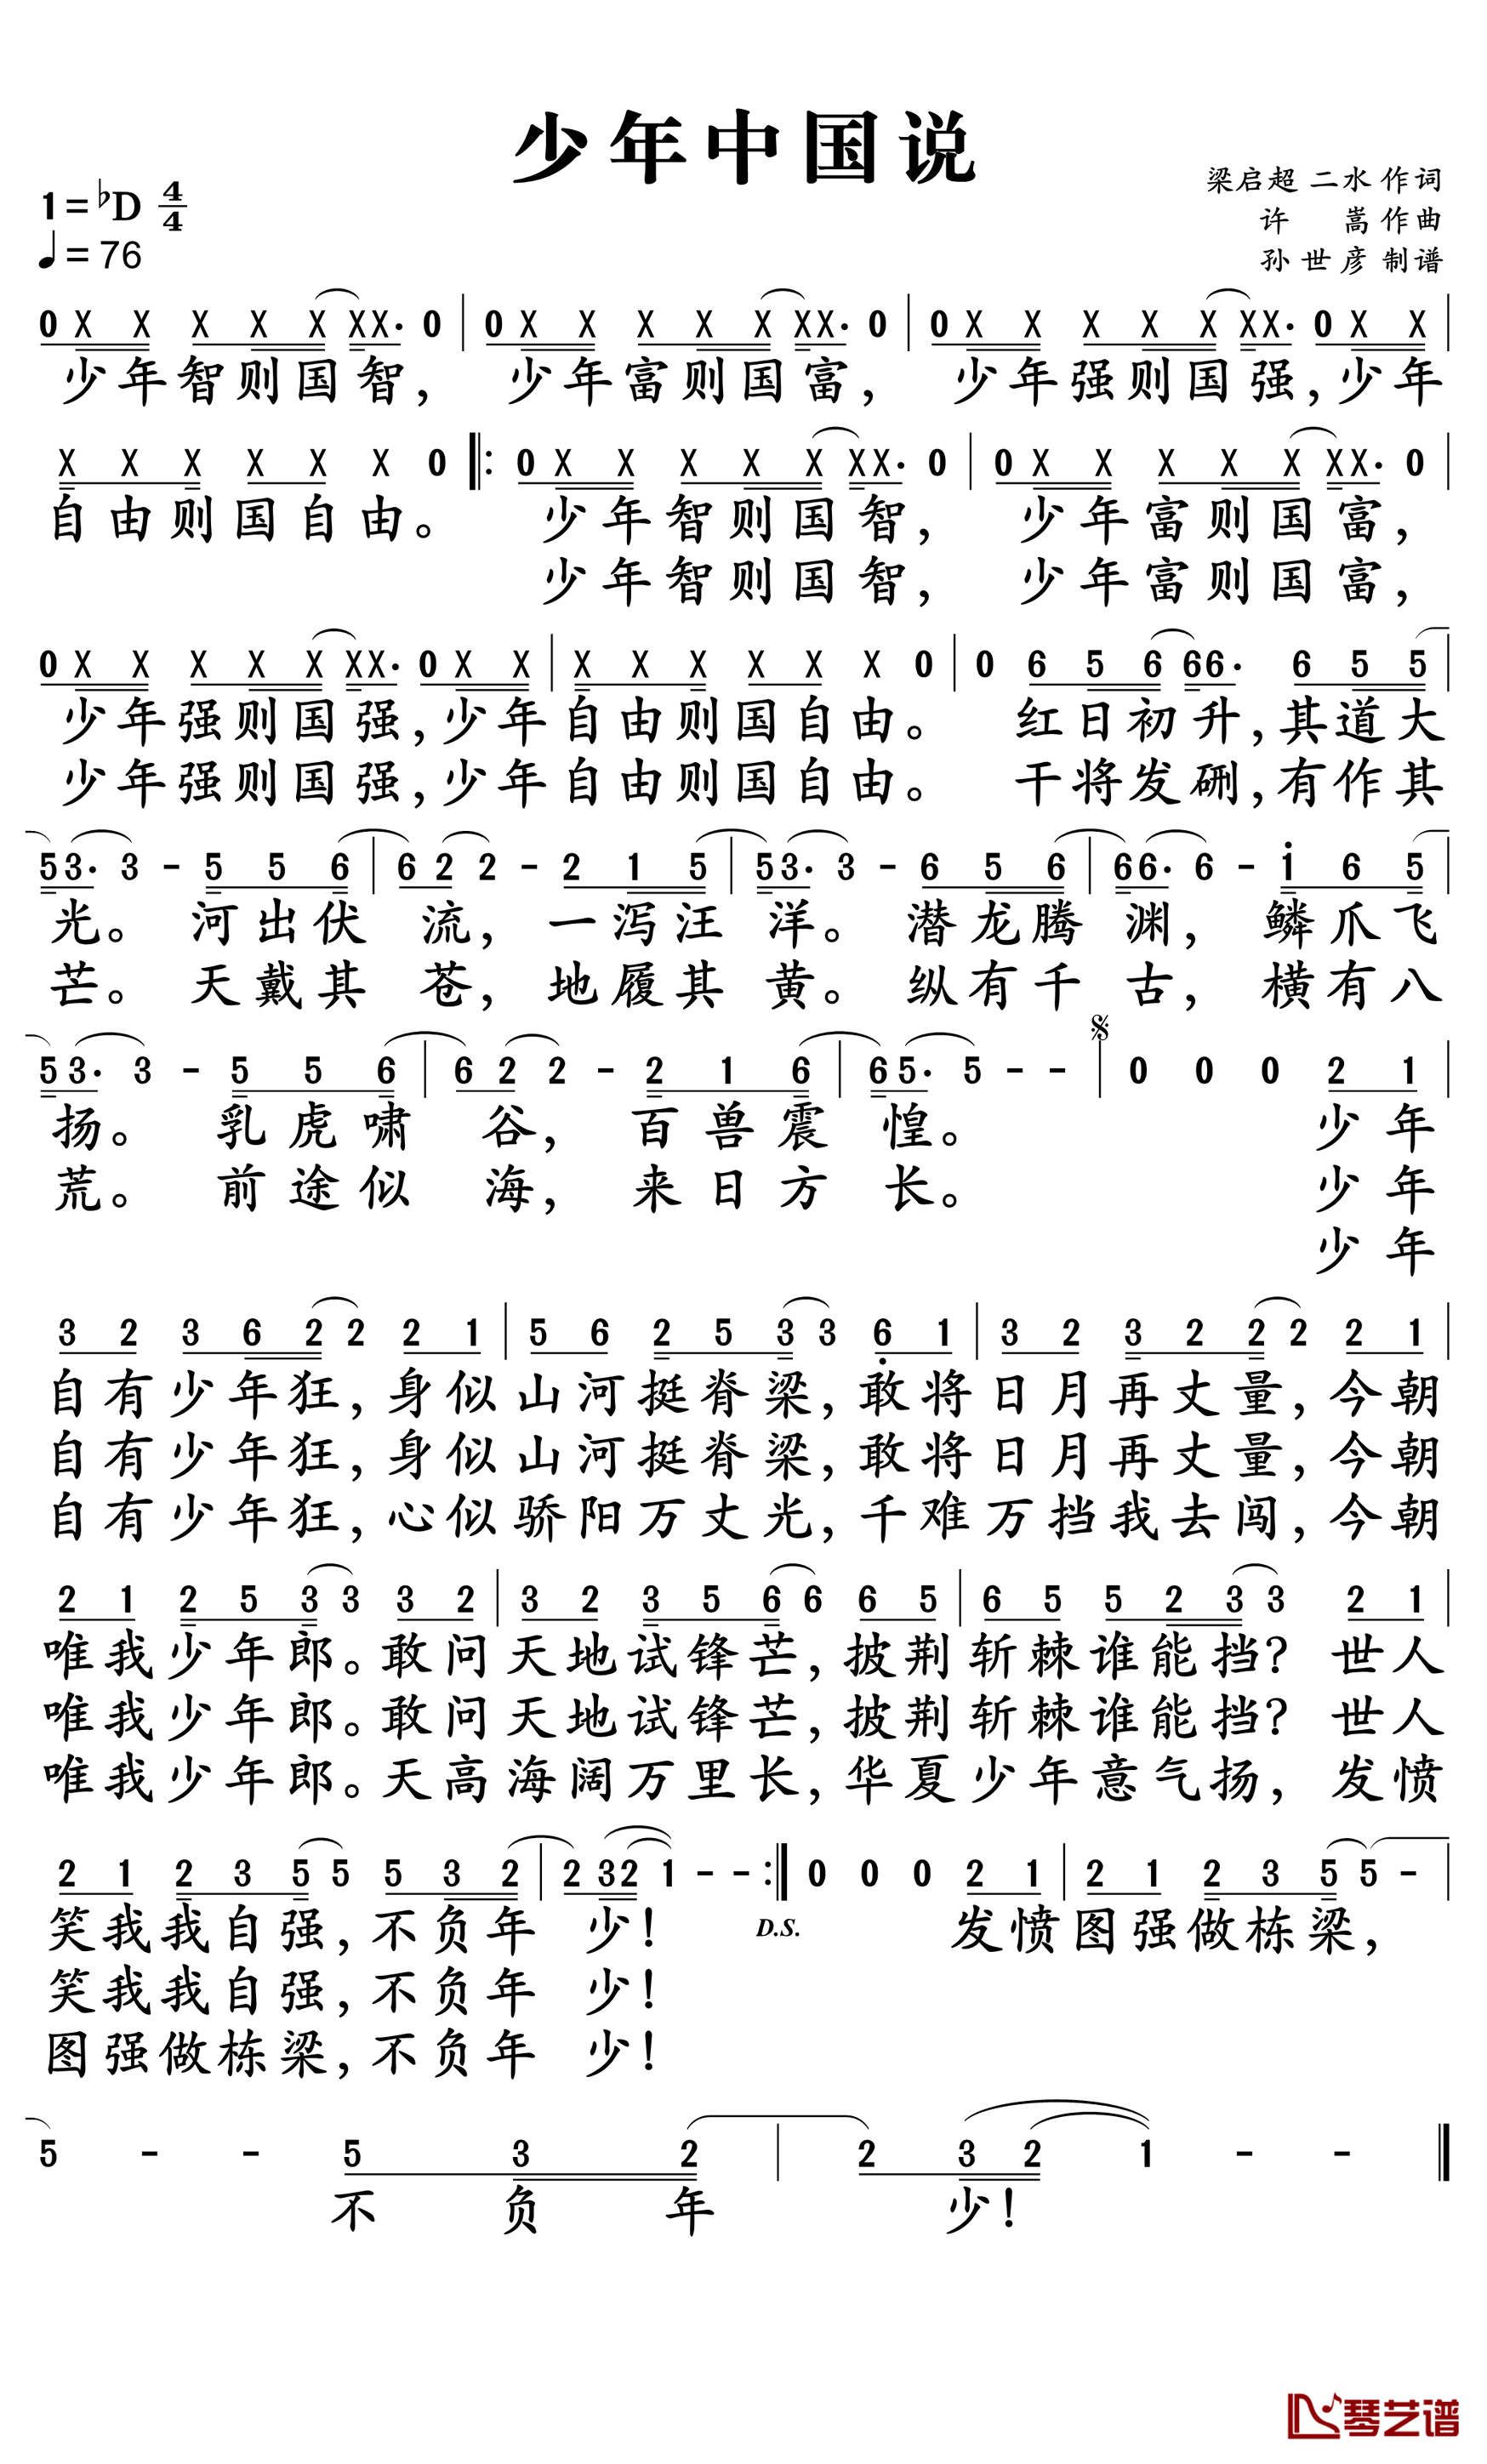 少年中国说
1=♭D 4/4
♩=76
梁启超 二水作词
许 嵩作曲
孙世彦制谱
0 X X X X X XX. 0 | 0 X X X X X XX. 0 | 0 X X X X X XX. 0 X X |
少年智则国智, 少年富则国富, 少年强则国强,少年
X X X X X X 0 |: 0 X X X X X XX. 0 | 0 X X X X X XX. 0 |
自由则国自由。 少年智则国智, 少年富则国富,
少年智则国智, 少年富则国富,
0 X X X X X XX. 0 X X | X X X X X X 0 | 0 6 5 6 66. 6 5 5 |
少年强则国强,少年自由则国自由。 红日初升,其道大
少年强则国强,少年自由则国自由。 干将发硎,有作其
53. 3 - 5 5 6 | 6 2 2 - 2 1 5 | 53. 3 - 6 5 6 | 66. 6 - i 6 5 |
光。 河出伏 流, 一泻汪 洋。 潜龙腾 渊, 鳞爪飞
芒。 天戴其 苍, 地履其 黄。 纵有千 古, 横有八
53. 3 - 5 5 6 | 6 2 2 - 2 1 6 | 65. 5 - - | 𝄋 0 0 0 2 1 |
扬。 乳虎啸 谷, 百兽震 惶。 少年
荒。 前途似 海, 来日方 长。 少年
少年
3 2 3 6 2 2 2 1 | 5 6 2 5 3 3 6̣ 1 | 3 2 3 2 2 2 2 1 |
自有少年狂,身似山河挺脊梁,敢将日月再丈量,今朝
自有少年狂,身似山河挺脊梁,敢将日月再丈量,今朝
自有少年狂,心似骄阳万丈光,千难万挡我去闯,今朝
2 1 2 5 3 3 3 2 | 3 2 3 5 6 6 6 5 | 6 5 5 2 3 3 2 1 |
唯我少年郎。敢问天地试锋芒,披荆斩棘谁能挡? 世人
唯我少年郎。敢问天地试锋芒,披荆斩棘谁能挡? 世人
唯我少年郎。天高海阔万里长,华夏少年意气扬, 发愤
2 1 2 3 5 5 5 3 2 | 2 32 1 - - :| 0 0 0 2 1 | 2 1 2 3 5 5 - |
笑我我自强,不负年 少! D.S. 发愤图强做栋梁,
笑我我自强,不负年 少!
图强做栋梁,不负年 少!
5 - - 5 3 2 | 2 3 2 1 - - ‖
不 负 年 少!
琴艺谱